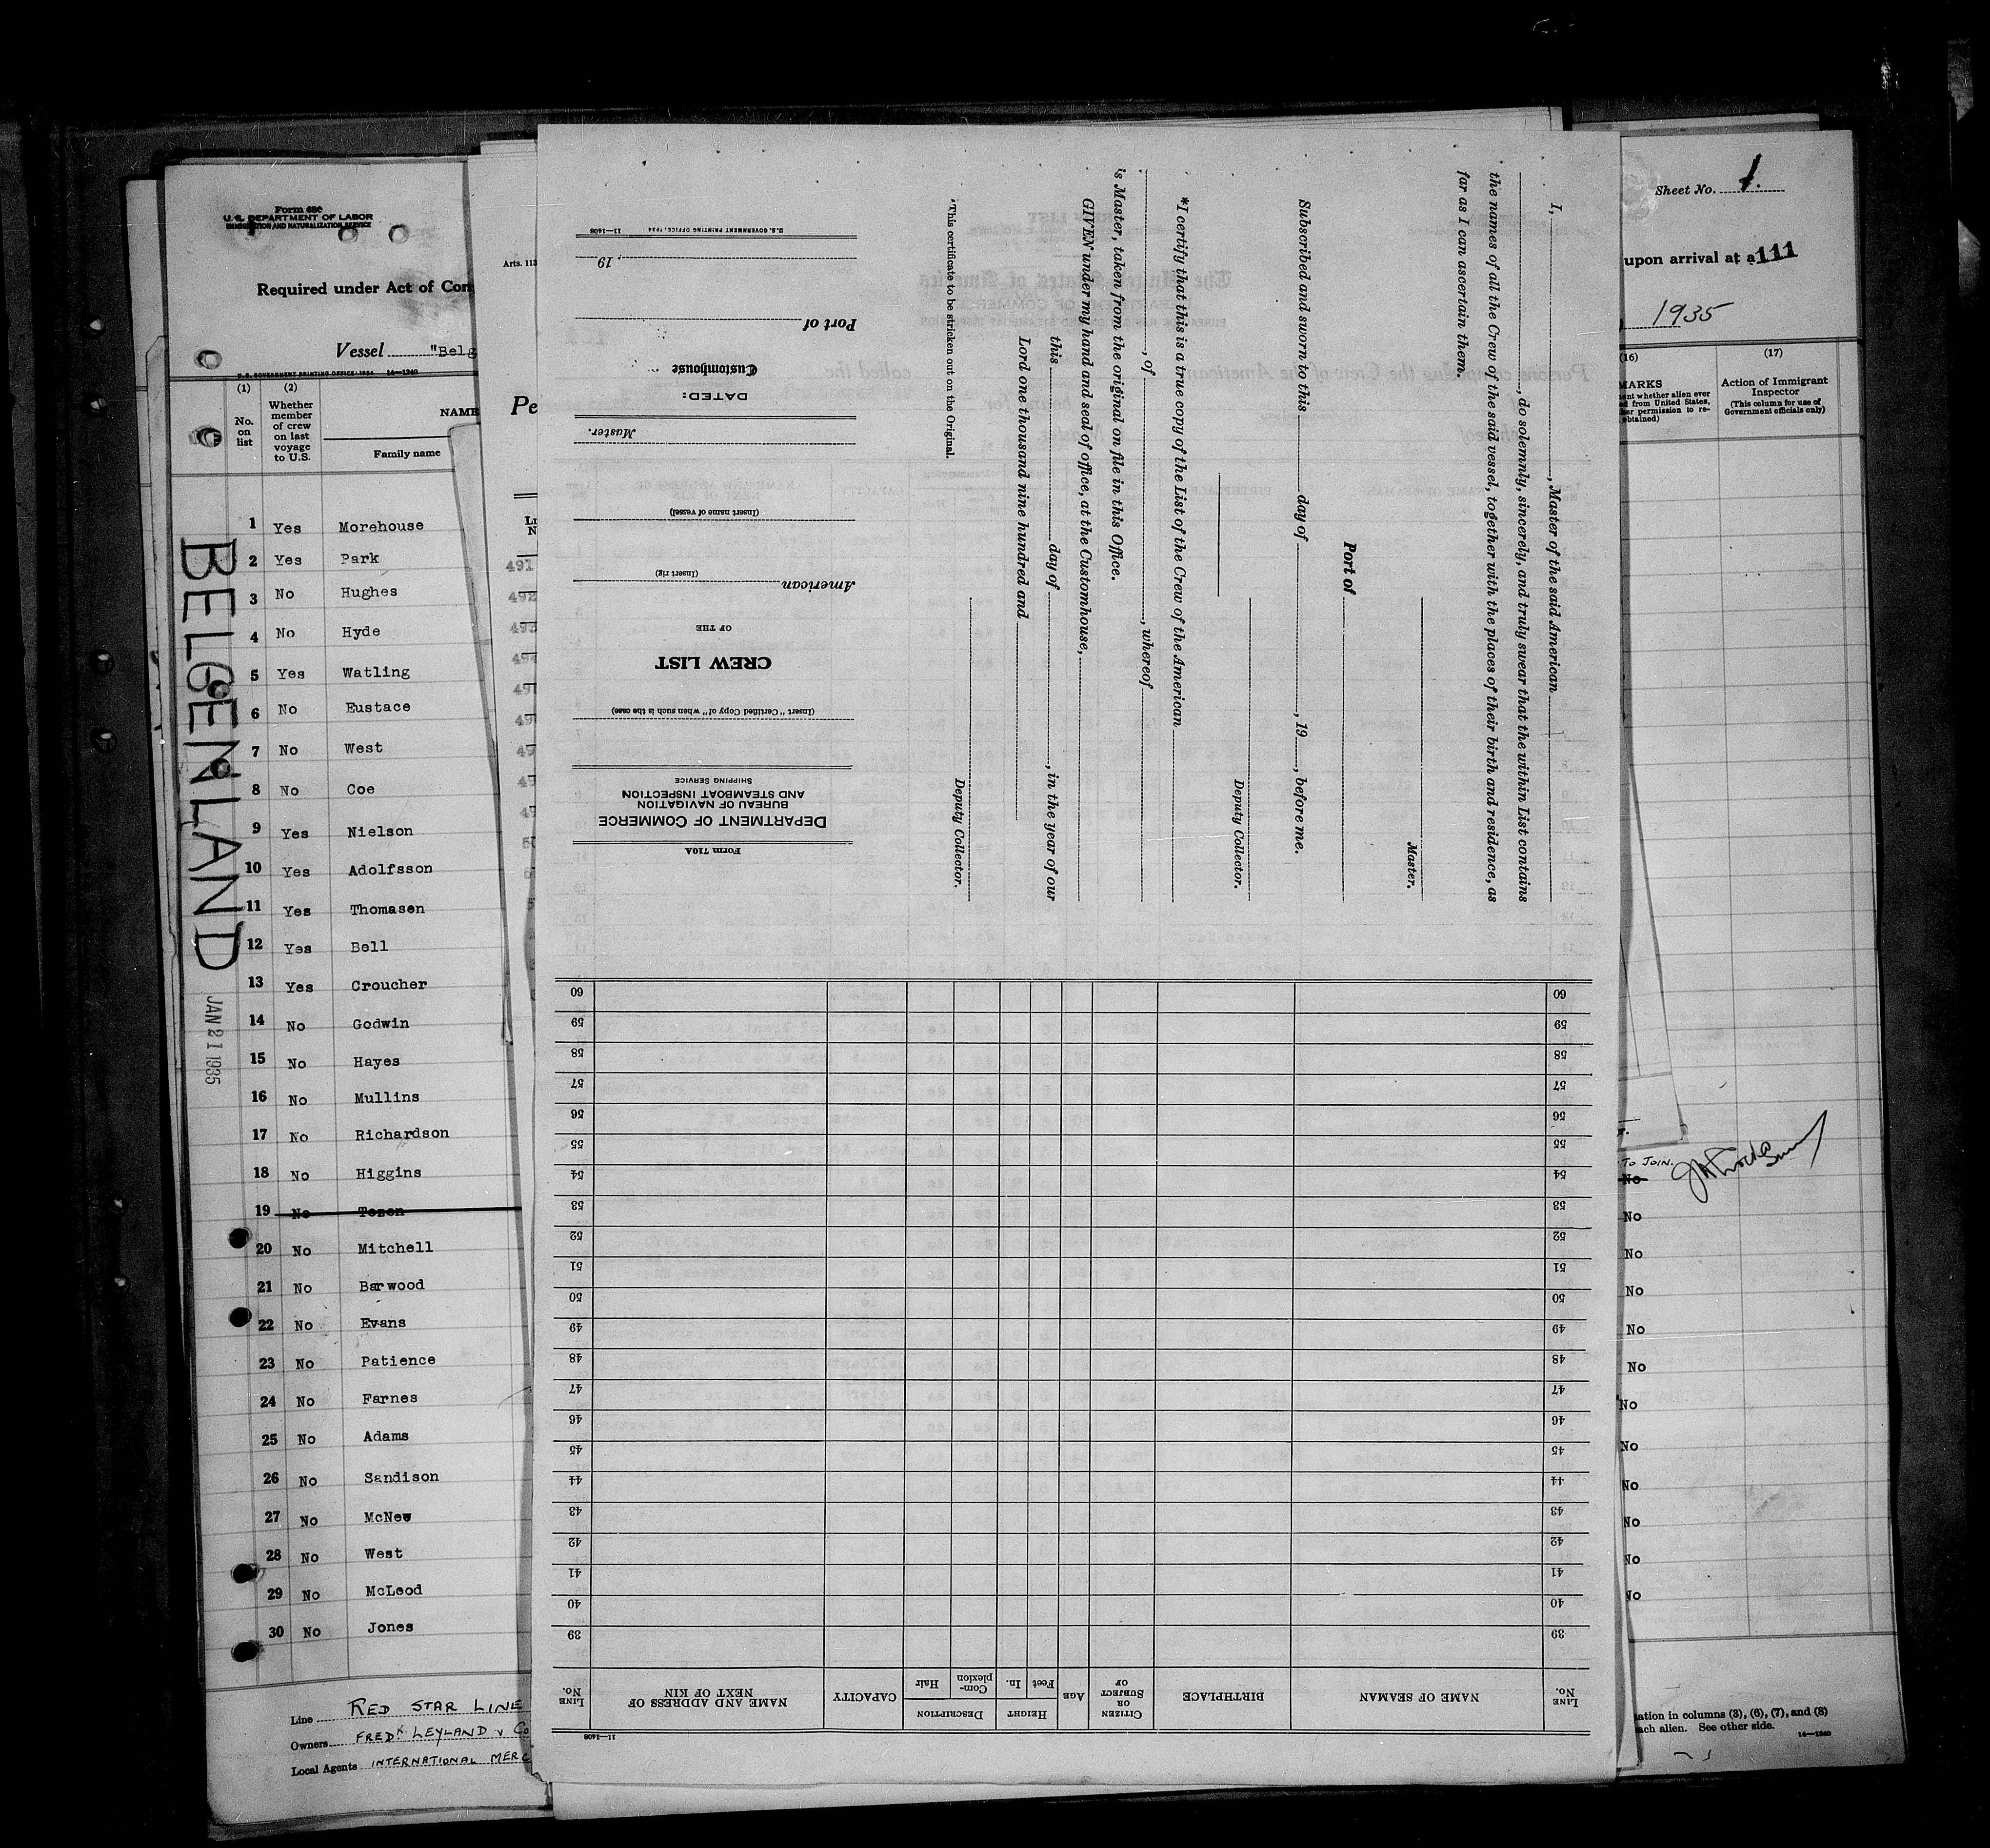 Form 680
U. S. DEPARTMENT OF LABOR
IMMIGRATION AND NATURALIZATION SERVICE
Required under Act of Con
Vessel "Belg
U. S. GOVERNMENT PRINTING OFFICE: 1934 14—1240
(1) (2)
No. on list
Whether member of crew on last voyage to U.S.
NAME
Family name
1 Yes Morehouse
2 Yes Park
3 No Hughes
4 No Hyde
5 Yes Watling
6 No Eustace
7 No West
8 No Coe
9 Yes Nielson
10 Yes Adolfsson
11 Yes Thomasen
12 Yes Bell
13 Yes Croucher
14 No Godwin
15 No Hayes
16 No Mullins
17 No Richardson
18 No Higgins
19 No Tozen
20 No Mitchell
21 No Barwood
22 No Evans
23 No Patience
24 No Farnes
25 No Adams
26 No Sandison
27 No McNew
28 No West
29 No McLeod
30 No Jones
BELGENLAND
JAN 21 1935
Line RED STAR LINE
Owners FREDK LEYLAND & Co
Local Agents INTERNATIONAL MERC
Arts. 113
Pe
491
492
I, , Master of the said American
, do solemnly, sincerely, and truly swear that the within List contains
the names of all the Crew of the said vessel, together with the places of their birth and residence, as
far as I can ascertain them.
Master.
Port of
Subscribed and sworn to this day of , 19 , before me.
Deputy Collector.
*I certify that this is a true copy of the List of the Crew of the American
, of , whereof
is Master, taken from the original on file in this Office.
GIVEN under my hand and seal of office, at the Customhouse,
this day of , in the year of our
Lord one thousand nine hundred and
Deputy Collector.
*This certificate to be stricken out on the Original.
Form 710A
DEPARTMENT OF COMMERCE
BUREAU OF NAVIGATION
AND STEAMBOAT INSPECTION
SHIPPING SERVICE
(Insert "Certified Copy of" when such is the case)
CREW LIST
OF THE
American
(Insert rig)
(Insert name of vessel)
Master.
DATED:
Customhouse
Port of
, 19
U.S. GOVERNMENT PRINTING OFFICE: 1934 11—1408
11—1408
LINE No.
NAME OF SEAMAN
BIRTHPLACE
CITIZEN OR SUBJECT OF
AGE
HEIGHT
Feet In.
DESCRIPTION
Complexion Hair
CAPACITY
NAME AND ADDRESS OF NEXT OF KIN
LINE No.
39 39
40 40
41 41
42 42
43 43
44 44
45 45
46 46
47 47
48 48
49 49
50 50
51 51
52 52
53 53
54 54
55 55
56 56
57 57
58 58
59 59
60 60
Sheet No. 1.
upon arrival at a 111
1935
(16) (17)
Action of Immigrant Inspector
(This column for use of Government officials only)
TO JOIN.
No
No
No
No
No
No
No
No
No
No
No
No
ation in columns (3), (6), (7), and (8)
ach alien. See other side.
14—1240